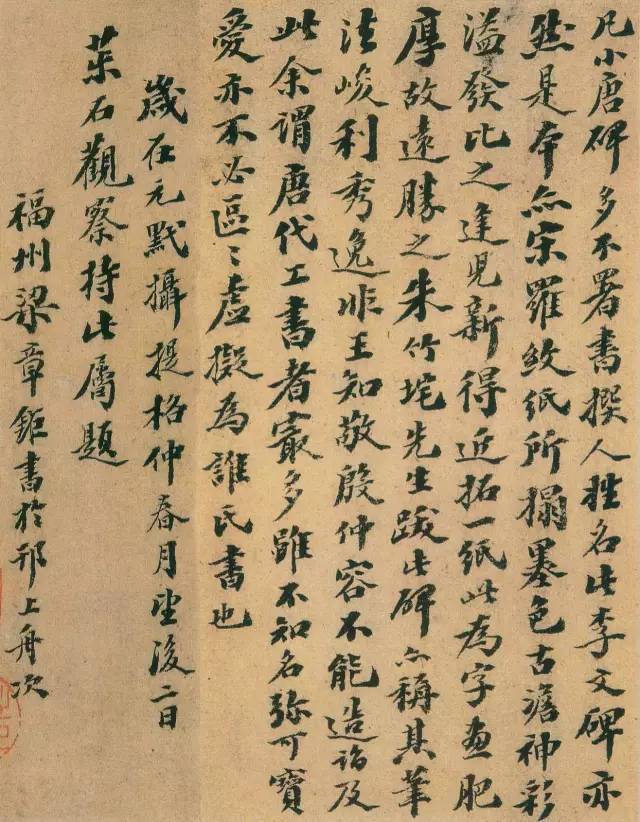 凡小唐碑多不署書撰人姓名此李文碑亦
然是本亦宋羅紋紙所搨墨色古澹神彩
溢發比之逢児新得近拓一紙此為字畫肥
厚故遠勝之朱竹垞先生跋此碑亦稱其筆
法峻利秀逸非王知敬殷仲容不能造詣及
此余謂唐代工書者寂多雖不知名弥可寶
愛亦不必區〻虛擬為誰氏書也
歲在元黓攝提格仲春月望後二日
茱石觀察持此屬題
福州梁章鉅書於邗上舟次